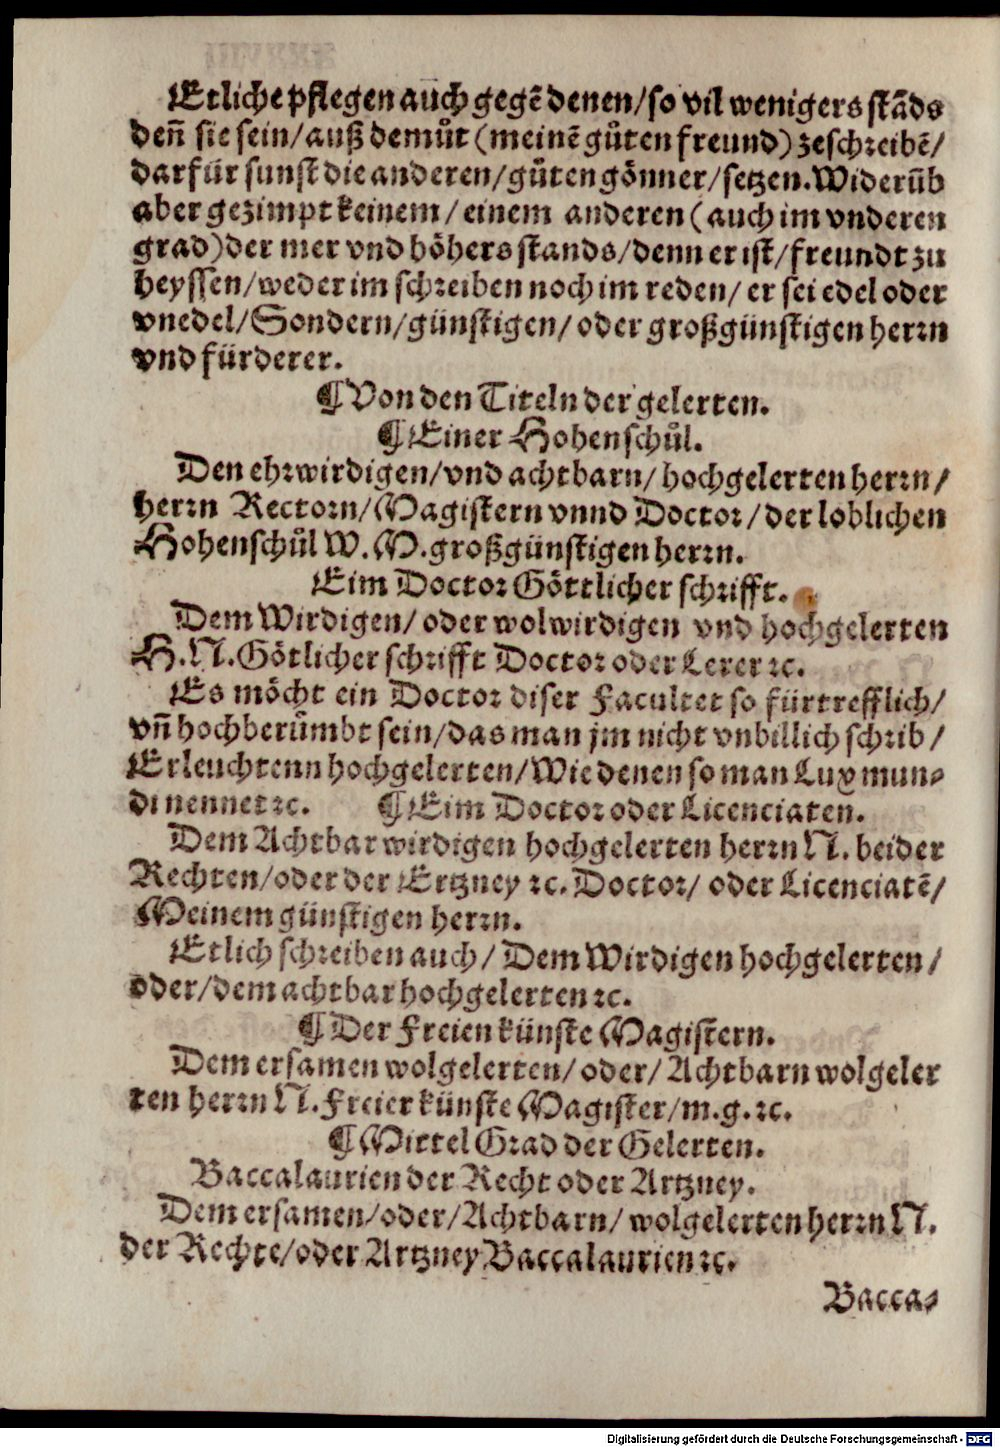 Etliche pflegen auch gegē denen/so vil wenigers stāds
deñ sie sein/auß demůt (meinē gůten freund) zeschreibē/
darfür sunst die anderen/gůten gönner/setzen. Widerūb
aber gezimpt keinem/einem anderen (auch im vnderen
grad) der mer vnd höhers stands/denn er ist/freundt zu
heyssen/weder im schreiben noch im reden/er sei edel oder
vnedel/Sondern/günstigen/oder großgünstigen herrn
vnd fürderer.
¶ Von den Titeln der gelerten.
¶ Einer Hohenschůl.
Den ehrwirdigen/vnd achtbarn/hochgelerten herrn/
herrn Rectorn/Magistern vnnd Doctor/der loblichen
Hohenschůl W. M. großgünstigen herrn.
Eim Doctor Göttlicher schrifft.
Dem Wirdigen/oder wolwirdigen vnd hochgelerten
H. N. Götlicher schrifft Doctor oder Lerer ꝛc.
Es möcht ein Doctor diser Facultet so fürtrefflich/
vñ hochberůmbt sein/das man jm nicht vnbillich schrib/
Erleuchtenn hochgelerten/Wie denen so man Lux mun⸗
di nennet ꝛc. ¶ Eim Doctor oder Licenciaten.
Dem Achtbar wirdigen hochgelerten herrn N. beider
Rechten/oder der Ertzney ꝛc. Doctor/oder Licenciatē/
Meinem günstigen herrn.
Etlich schreiben auch/Dem Wirdigen hochgelerten/
oder/dem achtbar hochgelerten ꝛc.
¶ Der Freien künste Magistern.
Dem ersamen wolgelerten/oder/Achtbarn wolgeler
ten herrn N. Freier künste Magister/m. g. ꝛc.
¶ Mittel Grad der Gelerten.
Baccalaurien der Recht oder Artzney.
Dem ersamen/oder/Achtbarn/wolgelerten herrn N.
der Rechte/oder Artzney Baccalaurien ꝛc.
Bacca⸗
Digitalisierung gefördert durch die Deutsche Forschungsgemeinschaft - DFG